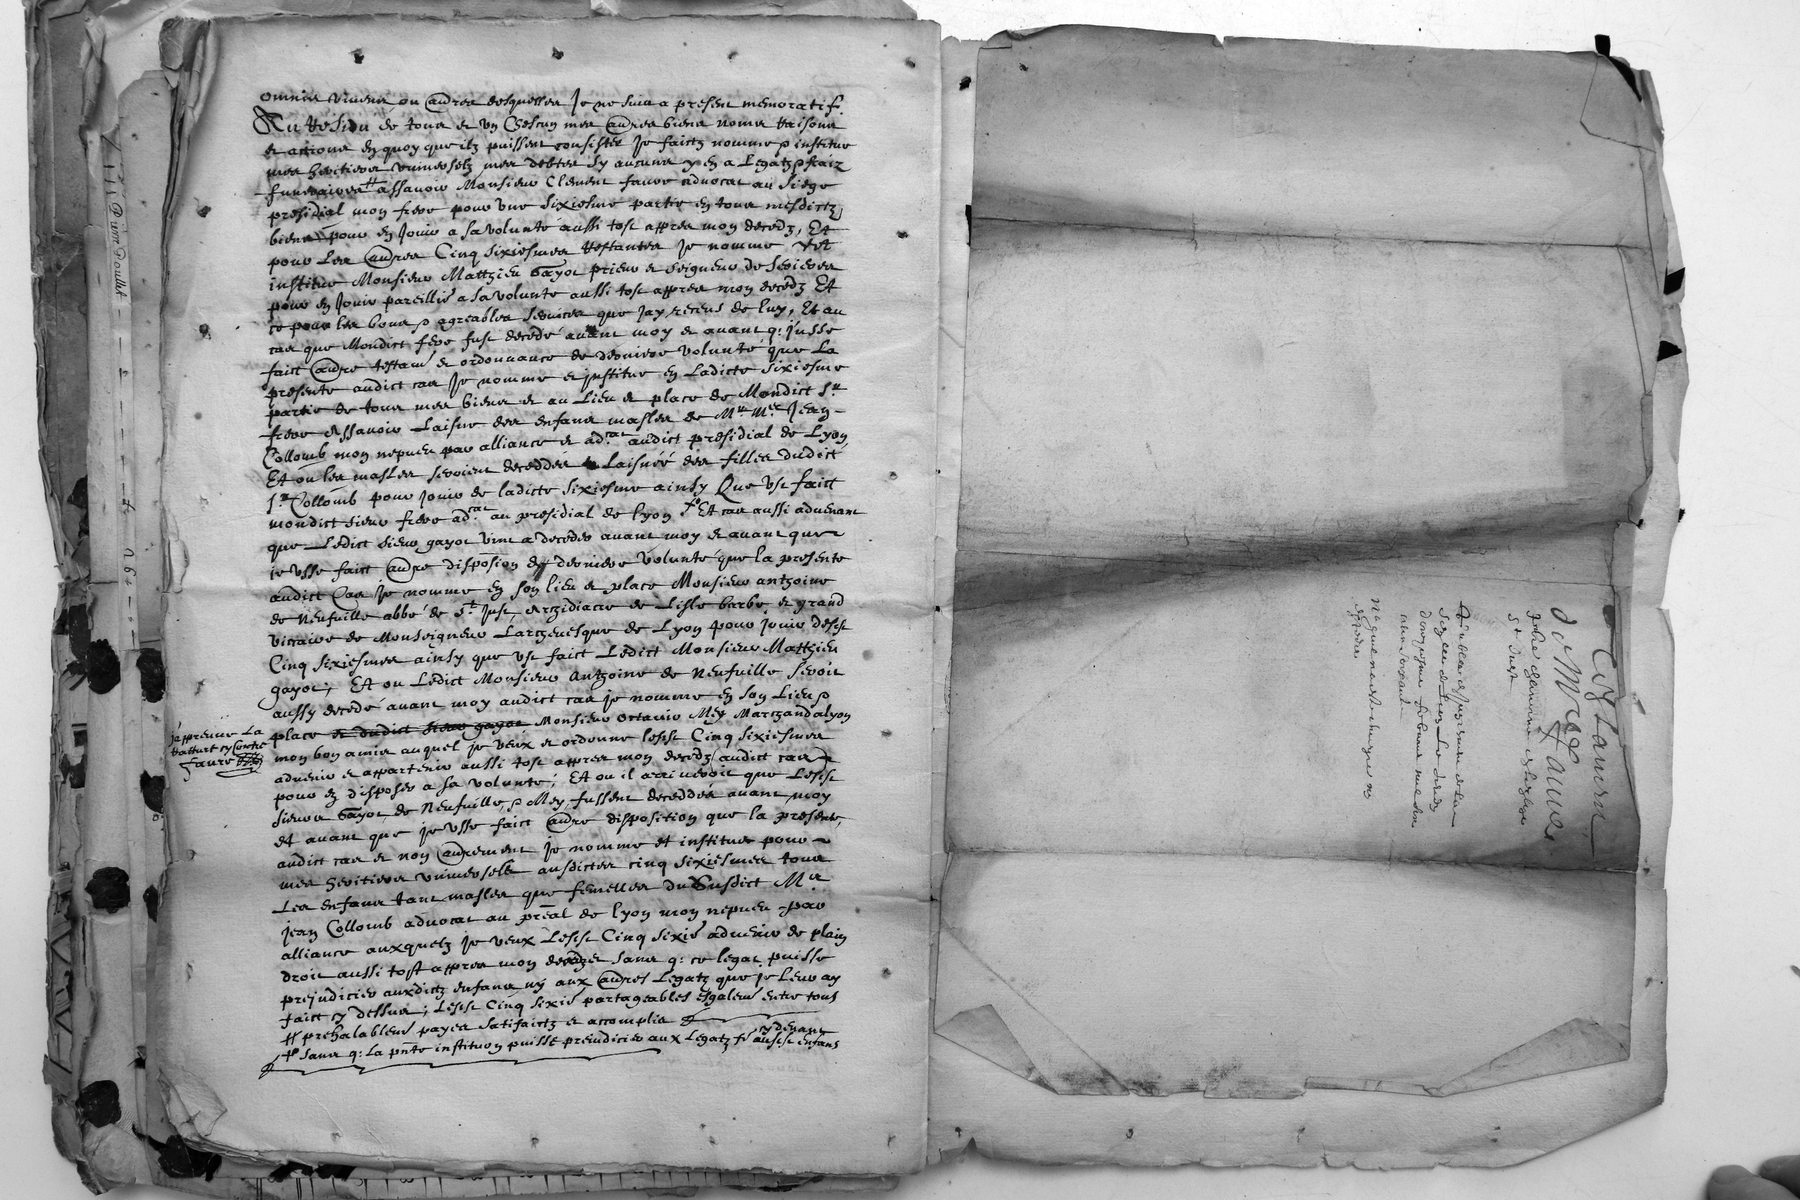 omnia vivens ou autres desquelles Je ne suis a present memoratif.
Au Residu de tous et un Chescun mes autres biens noms Raisons
et actions en quoy que ilz puissent consister Je faictz nomme & institue
mes heritiers universelz mes debtes sy aucuns y en a Legatz & fraiz
funeraires assavoir Monsieur Clement faure advocat au siege
presidial mon frere pour une sixiesme partie en tous mesdictz
biens pour en Jouir a sa volunté aussi tost appres mon decedz, Et
pour Les autres Cinq sixiesmes Restantes Je nomme et
institue Monsieur Matthieu Gayot prieur et seigneur de
pour en Jouir pareillie a sa volunté aussi tost appres mon decedz Et
ce pour les bons & agreables services que Jay receus de luy, Et au
cas que Mondict frere fust decedé avant moy et avant q: jusse
faict autre testamt et ordonnance de derniere volunté que La
presente audict cas Je nomme et institue en Ladicte sixiesme
partie de tous mes biens et au Lieu et place de Mondict Sr
frere assavoir Laisne des enfans masles de Mr Me Jean
Collomb mon nepveu par alliance et adcat audict presidial de Lyon
Et ou les masles seroient deceddés Laisnéé des filles dudict
Sr Collomb pour jouir de ladicte sixiesme ainsy Que ust faict
mondict sieur frere adcat au presidial de Lyon Et cas aussi advenant
que Ledict sieur gayot vint a deceder avant moy et avant que
je usse faict autre disposion de derniere volunté que la presente
audict Cas Je nomme en son lieu et place Monsieur anthoine
de Neufville abbé de St Just, archidiacre de Lisle barbe, et grand
viccaire de Monseigneur Larchevesque de Lyon pour jouir desd
Cinq sixiesmes ainsy que ust faict Ledict Monsieur Matthieu
gayot; Et ou Ledict Monsieur Anthoine de Neufville seroit
aussy decedé avant moy audict cas je nomme en son Lieu &
place et dudict sieur gayot Monsieur Octavio Mey Marchand a lyon
mon bon amis auquel je veux et ordonne lesd Cinq sixiesmes
advenir et appartenir aussi tost appres mon decedz audict cas
pour en disposer a sa volunté; Et ou il arriveroit que Lesd
sieurs Gayot de Neufville, & Mey, fussent deceddés avant moy
et avant que je usse faict autre disposition que la presente,
audict cas et non autrement je nomme et institue pour
mes heritiers universelz ausdictes cinq sixiesmes tous
Les enfans tant masles que femelles du susdict Mre
jean Collomb advocat au preal de Lyon mon nepveu par
alliance auxquelz je veux Lesd Cinq sixies advenir de plain
droit aussi tost appres mon decedz et sans q: ce legat puisse
prejudicier auxdictz enfans ny aux autres Legatz que je leur ay
faict cy dessus; Lesd Cinq sixies partageables esgalemt entre tous
prehalablemt payes satisfaictz et accomplis
sans q: La pnte instituon puisse prejudicier aux Legatz cydevant
ausd enfans
jappreuve La
Ratture cy Contre
faure
Cezt Lannu
de Mre Faure
pbre chanoine
St Just
Nayant